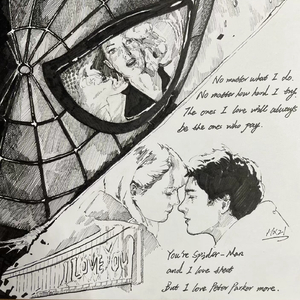 No matter what I do.
No matter how hard I try.
The ones I love will always
be the ones who pay.
I LOVE YOU
You're Spyder-Man
and I love that
But I love Peter Parker more.